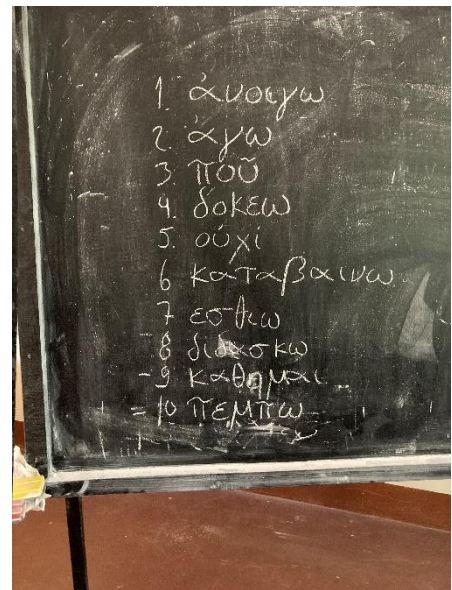 1. ἀνοιγω
2. ἄγω
3. ποῦ
4. δοκεω
5. οὐχί
6 καταβαινω
7 εσθιω
8 διδασκω
9 καθημαι
10 πεμπω